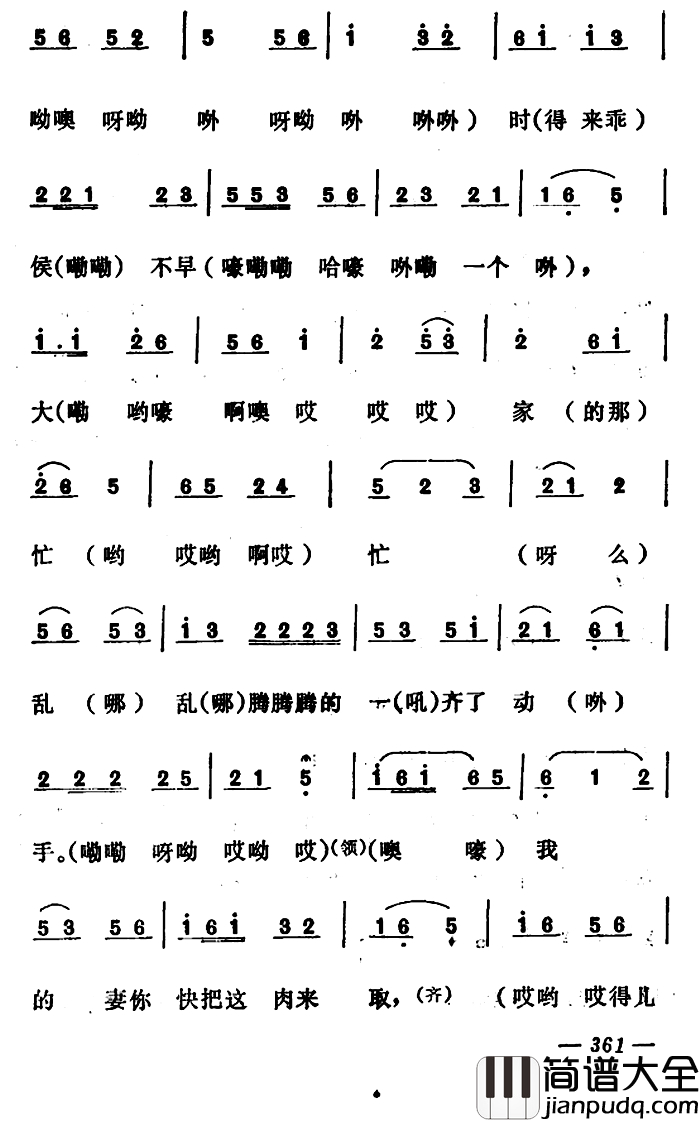 56 52 | 5 56 | i 32 | 6i i3 |
呦噢 呀呦 哟 呀呦 哟 哟哟) 时(得 来乖)
2 21 23 | 5 53 56 | 23 21 | 16 5 |
侯(嘞嘞) 不早(嚎嘞嘞 哈嚎 哟嘞 一个 哟),
i.i 26 | 56 i | 2 53 | 2 6i |
大(嘞 哟嚎 啊噢 哎 哎 哎) 家 (的那)
26 5 | 65 24 | 5 2 3 | 21 2 |
忙 (哟 哎哟 啊哎) 忙 (呀 么)
56 53 | i3 2223 | 53 5i | 21 61 |
乱 (哪) 乱(哪)腾腾腾的 一(吼)齐了 动 (哟)
2 2 2 25 | 21 5 | i6i 65 | 6 1 2 |
手。(嘞嘞 呀呦 哎呦 哎)(领)(噢 嚎) 我
53 56 | i6i 32 | 16 5 | i6 56 |
的 妻你 快把这 肉来 取,(齐) (哎哟 哎得儿
— 361 —
简谱大全
jianpudq.com